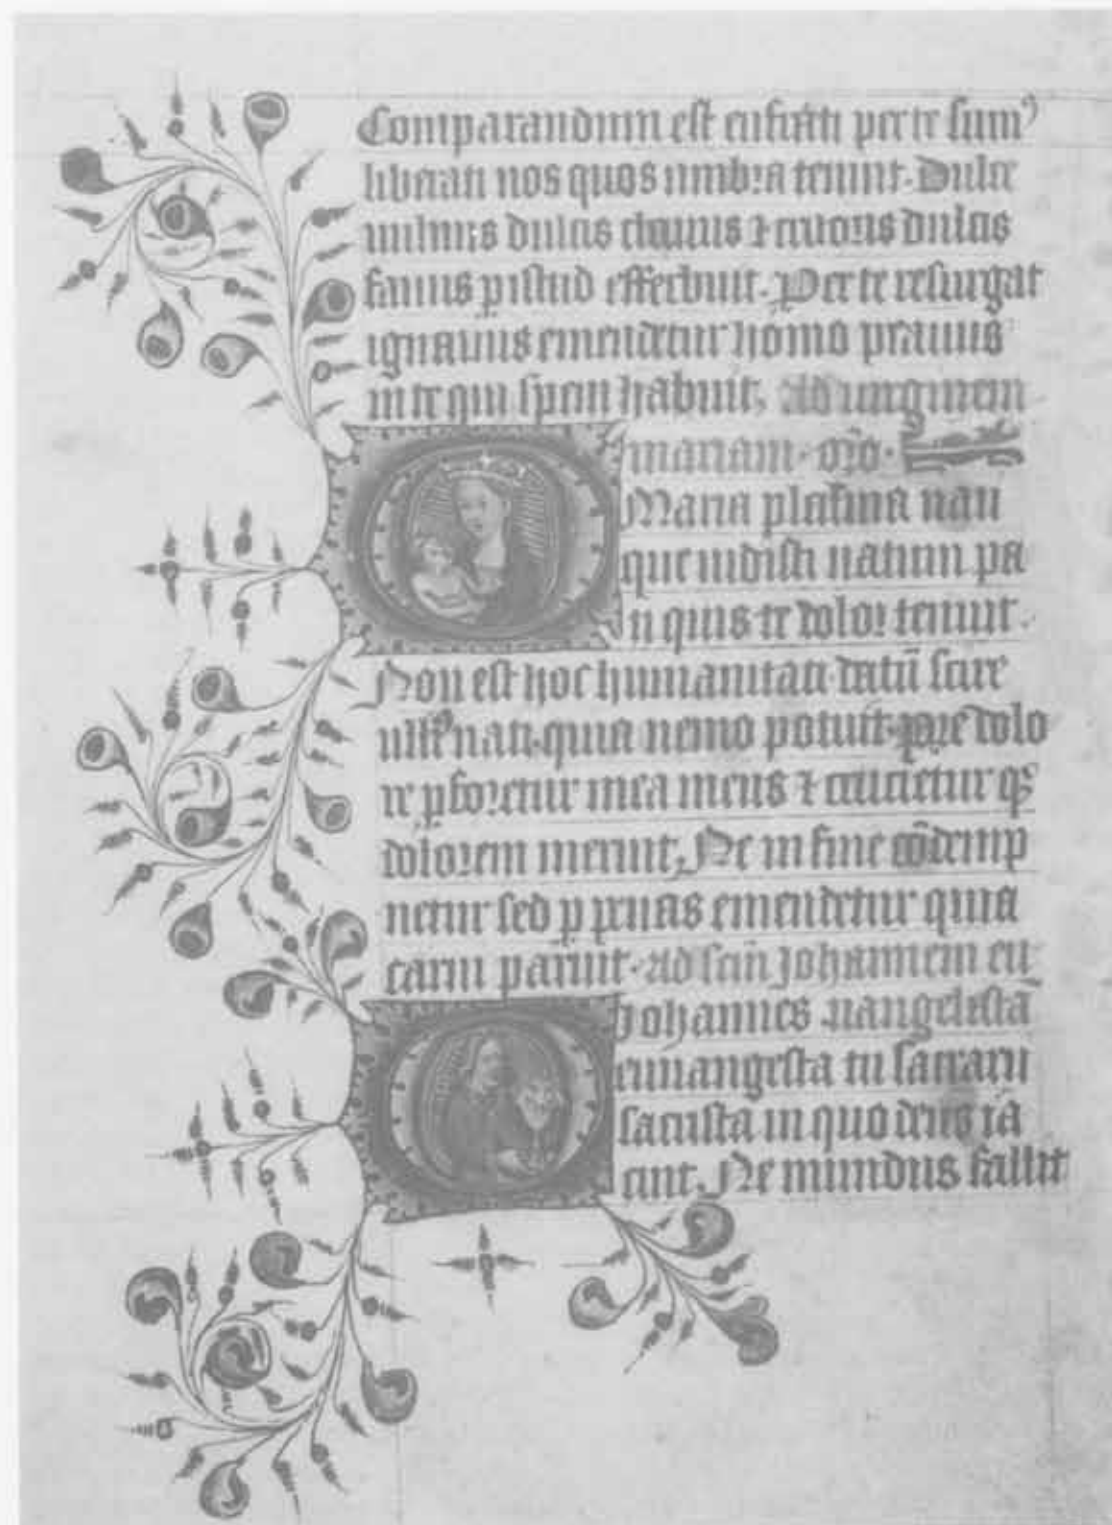 Comparandum est eufrati per te sum⁹
liberati nos quos umbra tenuit. Dulce
uulnus dulcis clauus ⁊ cruoris dulcis
fauus p̱ istud efferbuit. Per te resurgat
ignauus emendetur homo prauus
in te qui spem habuit, ad uirginem
mariam. oro.
Maria plasma nau
que uidisti natum pa
ti quis te dolor tenuit.
Non est hoc humanitati datū scire
nati. quia nemo potuit. pre dolo
re p̱foretur mea mens ⁊ crucietur
dolorem meruit. Ne in fine cōdemp
netur sed p̱ penas emendetur quia
carni paruit. ad scm̄ Johannem eu
Johannes uangelistā
euuangesta tu sacrarii
sacrista in quo deus ia
cuit. Ne mundus fallit